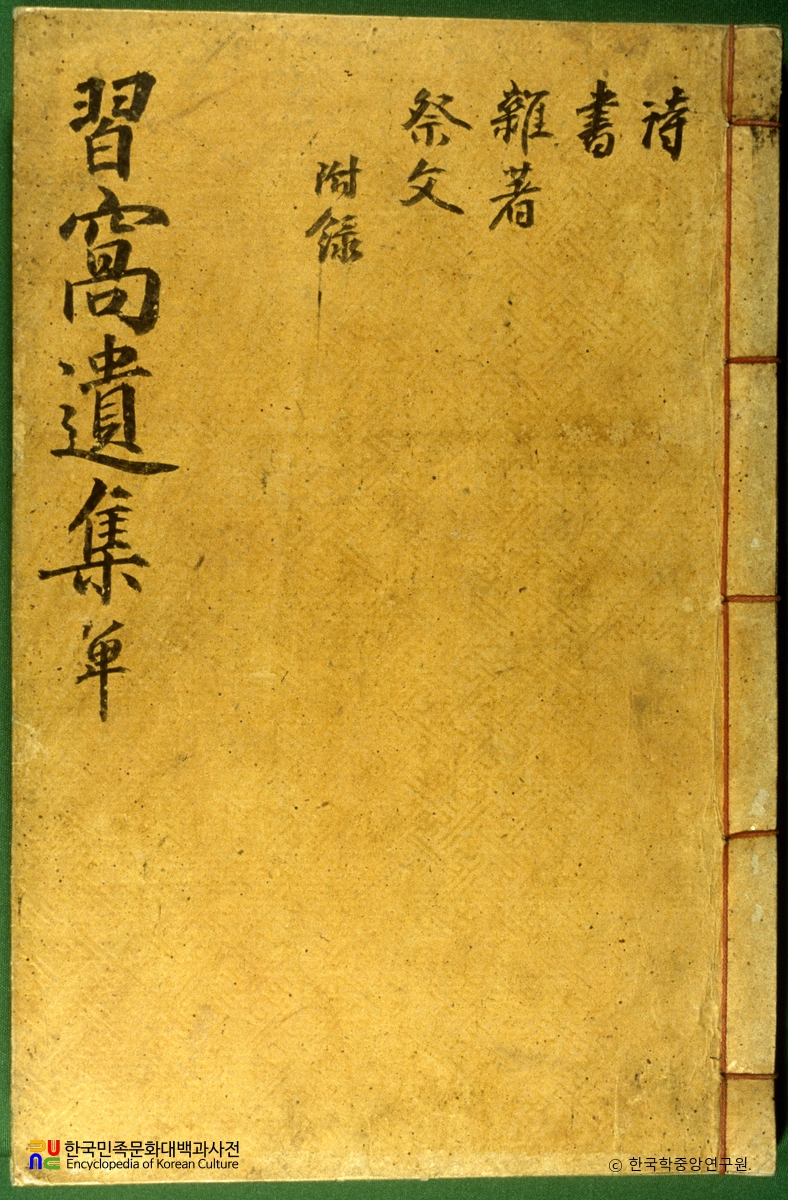 詩
書
雜著
祭文
附錄
習窩遺集 単
한국민족문화대백과사전
Encyclopedia of Korean Culture
© 한국학중앙연구원